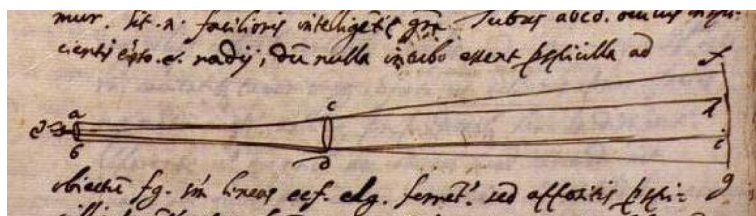 mur. sit .n. facilioris intelligẽtię grã Tubus abcd. oculus inspi-
cientis esto .e. radij, dũ nulla in tubo essent perspicilla ad
f
c
a
h
e
i
b
d
g
obiectũ fg. sm̃ lineas ecf. edg. ferrẽt.' sed appositis perspi-